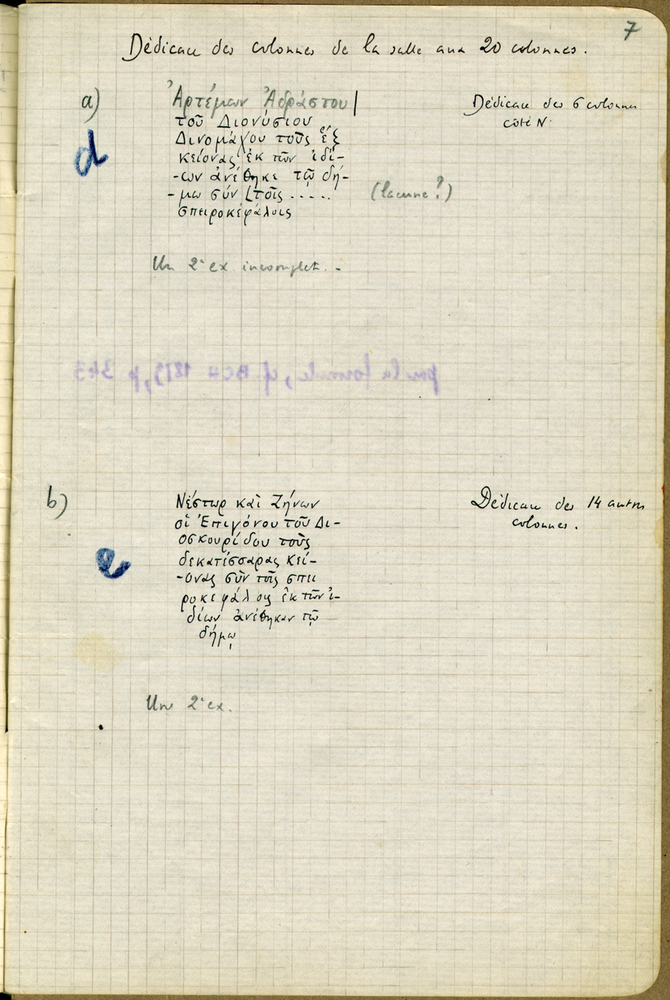 7
Dédicace des colonnes de la salle aux 20 colonnes.
a)
Ἀρτέμων Ἀδράστου |
τοῦ Διονυσίου
Δινομάχου τοὺς ἓξ
κείονας ἐκ τῶν ἰδί-
-ων ἀνέθηκε τῷ δή-
-μῳ σὺν [τοῖς ..... (lacune?)
σπειροκεφάλοις
Dédicace des 6 colonnes
côté N.
d
Un 2e ex incomplet. -
pour la formule, cf BCH 18 , p 343
b)
Νέστωρ καὶ Ζήνων
οἱ Ἐπιγόνου τοῦ Δι-
οσκουρίδου τοὺς
δεκατέσσαρας κεί-
-ονας σὺν τοῖς σπει
ροκεφάλοις ἐκ τῶν ἰ-
δίων ἀνέθηκαν τῷ
δήμῳ
Dédicace des 14 autres
colonnes.
e
Un 2e ex.